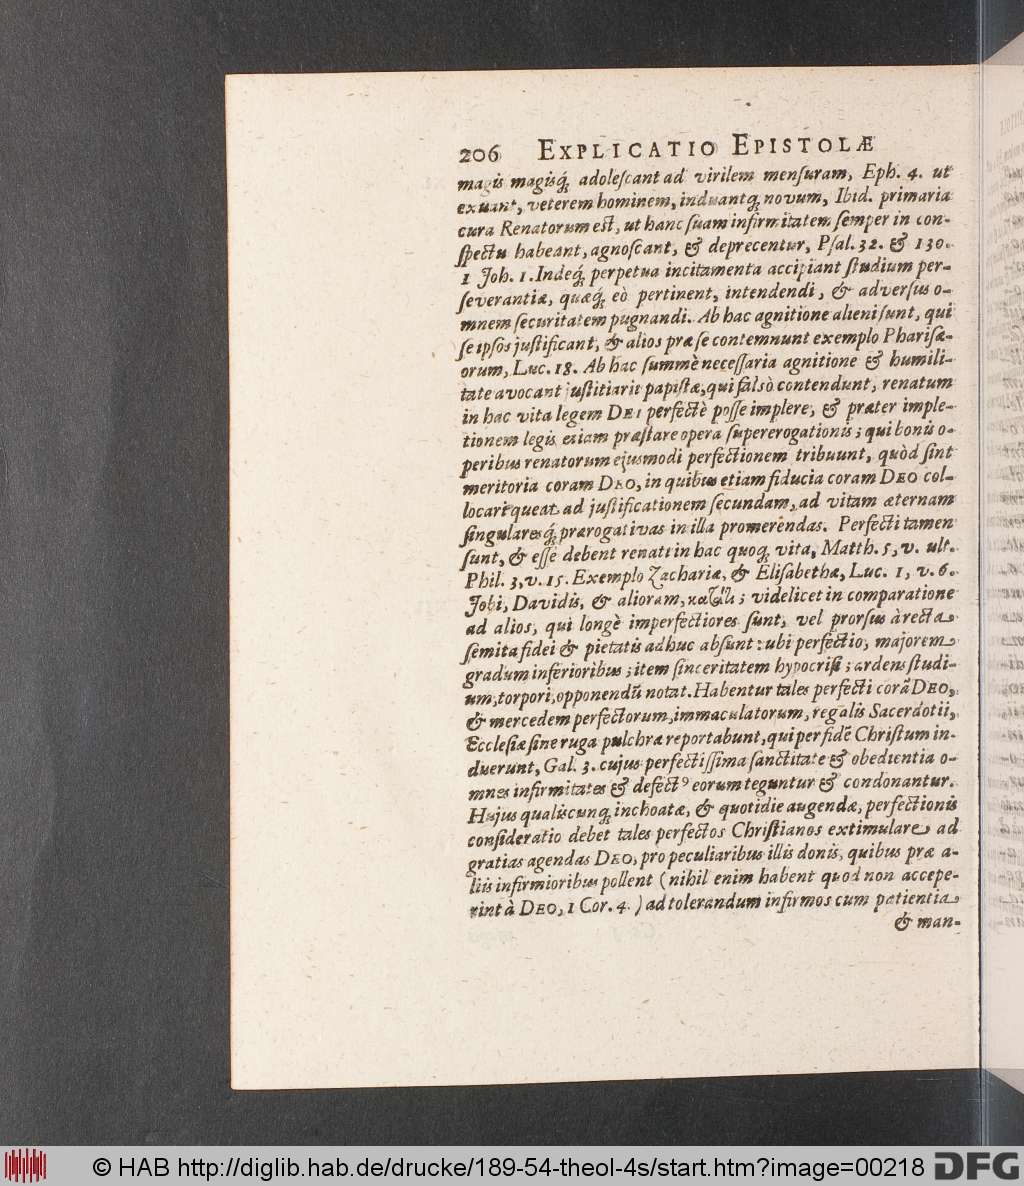 206 EXPLICATIO EPISTOLÆ
magis magisq́; adoleſcant ad virilem menſuram, Eph. 4. ut
exuant, veterem hominem, induantq; novum, Ibid. primaria
cura Renatorum eſt, ut hanc ſuam infirmitatem ſemper in con-
ſpectu habeant, agnoſcant, & deprecentur, Pſal. 32. & 130.
1 Joh. 1. Indeq́; perpetua incitamenta accipiant ſtudium per-
ſeverantiæ, quæq́; eò pertinent, intendendi, & adverſus o-
mnem ſecuritatem pugnandi. Ab hac agnitione alieni ſunt, qui
ſe ipſos juſtificant, & alios præ ſe contemnunt exemplo Phariſæ-
orum, Luc. 18. Ab hac ſummè neceſſaria agnitione & humili-
tate avocant juſtitiarii papiſtæ, qui falsò contendunt, renatum
in hac vita legem DEI perfectè poſſe implere, & præter imple-
tionem legis etiam præſtare opera ſupererogationis; qui bonis o-
peribus renatorum ejusmodi perfectionem tribuunt, quòd ſint
meritoria coram DEO, in quibus etiam fiducia coram DEO col-
locari queat ad juſtificationem ſecundam, ad vitam æternam
ſingularesq́; prærogativas in illa promerendas. Perfecti tamen
ſunt, & eſſe debent renati in hac quoq; vita, Matth. 5, v. ult.
Phil. 3, v. 15. Exemplo Zachariæ, & Eliſabethæ, Luc. 1, v. 6.
Jobi, Davidis, & aliorum, videlicet in comparatione
ad alios, qui longè imperfectiores ſunt, vel prorſus à recta
ſemita fidei & pietatis adhuc abſunt: ubi perfectio, majorem
gradum inferioribus; item ſinceritatem hypocriſi; ardens ſtudi-
um, torpori, opponendū notat. Habentur tales perfecti corā DEO,
& mercedem perfectorum, immaculatorum, regalis Sacerdotii,
Eccleſiæ ſine ruga pulchræ reportabunt, qui per fidē Chriſtum in-
duerunt, Gal. 3. cujus perfectiſſima ſanctitate & obedientia o-
mnes infirmitates & defectꝰ eorum teguntur & condonantur.
Hujus qualiscunq; inchoatæ, & quotidie augendæ, perfectionis
conſideratio debet tales perfectos Chriſtianos extimulare ad
gratias agendas DEO, pro peculiaribus illis donis, quibus præ a-
liis infirmioribus pollent (nihil enim habent quod non accepe-
rint à DEO, 1 Cor. 4.) ad tolerandum infirmos cum patientia
& man-
© HAB http://diglib.hab.de/drucke/189-54-theol-4s/start.htm?image=00218 DFG